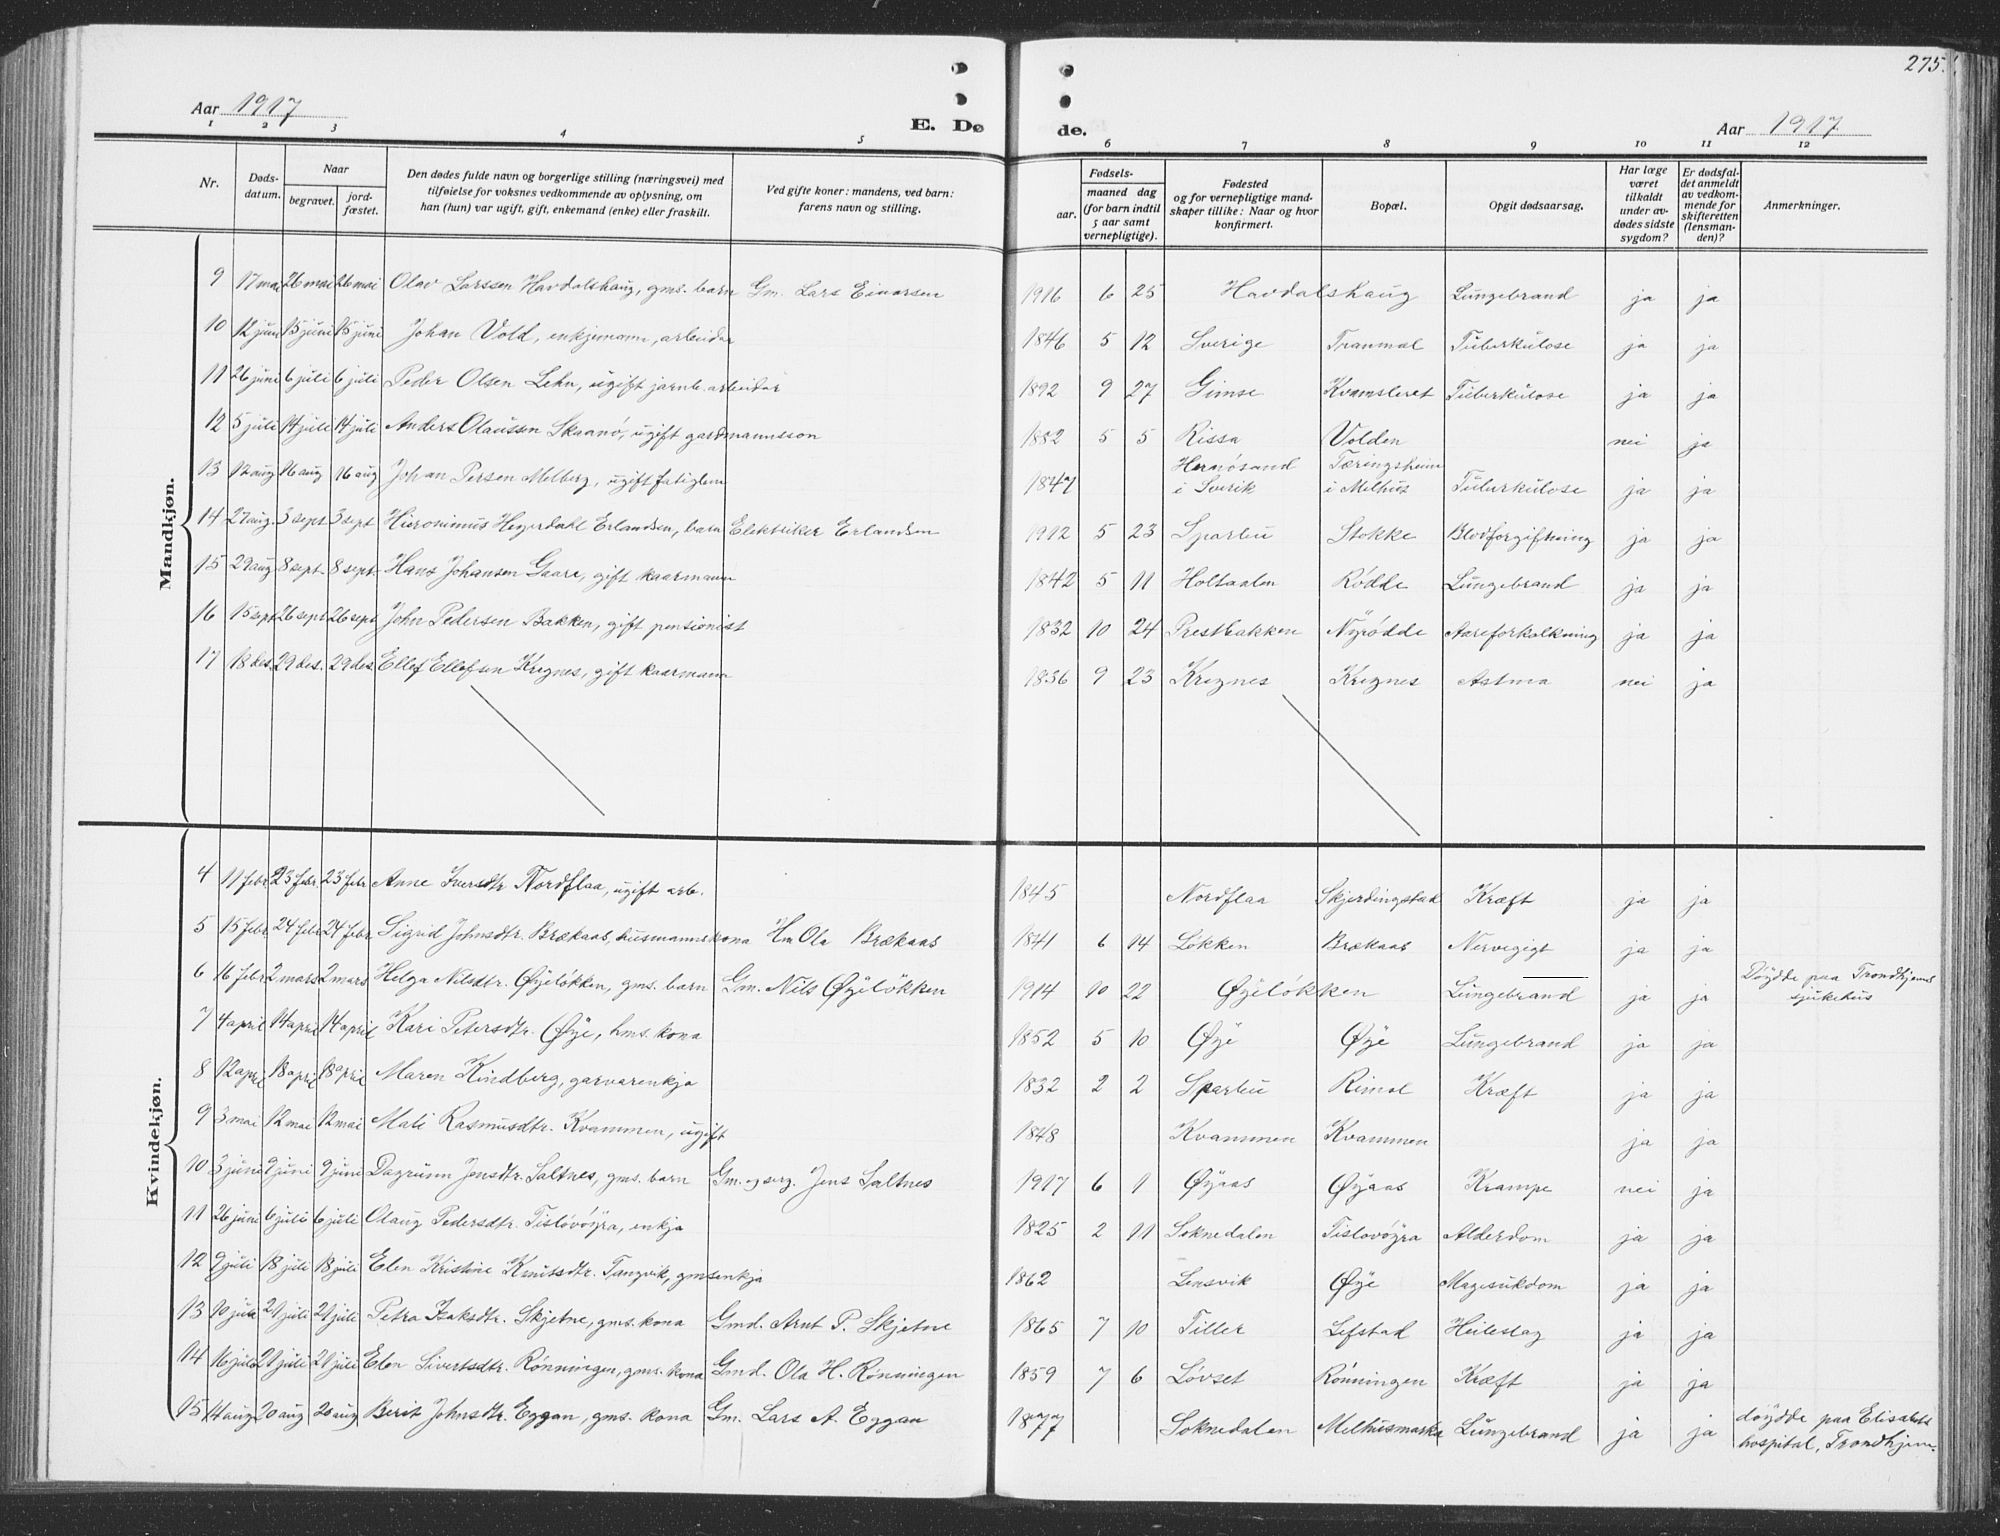 275.
Aar 1917
E. Dø de.
Aar 1917
1 2 3 4 5 6 7 8 9 10 11 12
Nr.
Døds-
datum.
Naar
begravet.
jord-
fæstet.
Den dødes fulde navn og borgerlige stilling (næringsvei) med
tilføielse for voksnes vedkommende av oplysning, om
han (hun) var ugift, gift, enkemand (enke) eller fraskilt.
Ved gifte koner: mandens, ved barn:
farens navn og stilling.
Fødsels-
aar.
maaned dag
(for barn indtil
5 aar samt
vernepligtige).
Fødested
og for vernepligtige mand-
skaper tillike: Naar og hvor
konfirmert.
Bopæl.
Opgit dødsaarsag.
Har læge
været
tilkaldt
under av-
dødes sidste
sygdom?
Er dødsfal-
det anmeldt
av vedkom-
mende for
skifteretten
(lensman-
den)?
Anmerkninger.
Mandkjøn.
9 17 mai 26 mai 26 mai Olav Larssen Havdalshaug, gms. barn Gm. Lars Einarsen 1916 6 25 Havdalshaug Lungebrand ja ja
10 12 juni 15 juni 15 juni Johan Vold, enkjemann, arbeidar 1846 5 12 Sverige Tranmal Tuberkulose ja ja
11 26 juni 6 juli 6 juli Peder Olsen Lehn, ugift jarnb. arbeidar 1892 9 27 Gimse Kvamsleret Tuberkulose ja ja
12 5 juli 14 juli 14 juli Anders Olaussen Skaanø, ugift gardmannsson 1882 5 5 Rissa Volden nei ja
13 12 aug 16 aug 16 aug Johan Persen Melberg, ugift fatiglem 1847 Hernøsand i Sverik Tæringsheim i Melhus Tuberkulose ja ja
14 27 aug. 3 sept 3 sept Hieronimus Hegerdahl Erlandsen, barn Elektriker Erlandsen 1912 5 23 Sparbu Stokke Blodforgiftning ja ja
15 29 aug 8 sept 8 sept Hans Johansen Gaare, gift kaarmann 1842 5 11 Holtaalen Rødde Lungebrand ja ja
16 15 sept 26 sept 26 sept John Pedersen Bakken, gift pensionist 1832 10 24 Prestbakken Nyrødde Aareforkalkning ja ja
17 18 des. 29 des. 29 des Ellef Ellefsen Kregnes, gift kaarmann 1836 9 23 Kregnes Kregnes Astma nei ja
Kvindekjøn.
4 11 febr 23 febr. 23 febr Anne Iversdtr Nordflaa, ugift arb. 1845 Nordflaa Skjerdingstad Kræft ja ja
5 15 febr 24 febr 24 febr Sigrid Johnsdtr. Brækaas, husmannskona Hm Ola Brækaas 1841 6 14 Løkken Brækaas Nervegigt ja ja
6 16 febr 2 mars 2 mars Helga Nilsdtr. Øyeløkken, gms. barn Gm. Nils Øyeløkken 1914 10 22 Øyeløkken Lungebrand ja ja Døydde paa Trondhjems sjukehus
7 4 april 14 april 14 april Kari Petersdtr. Øye, hms. kona 1852 5 10 Øye Øye Lungebrand ja ja
8 12 april 18 april 18 april Maren Kindberg, garvarenkja 1832 2 2 Sparbu Rimol Kræft ja ja
9 3 mai 12 mai 12 mai Mali Rasmusdtr. Kvammen, ugift 1848 Kvammen Kvammen ja ja
10 3 juni 9 juni 9 juni Dagrunn Jensdtr. Saltnes, gms. barn Gm. og serg. Jens Saltnes 1917 6 1 Øyaas Øyaas Krampe nei ja
11 26 juni 6 juli 6 juli Olaug Pedersdtr. Tisløvøyra, enkja 1825 2 11 Soknedalen Tisløvøyra Alderdom ja ja
12 9 juli 18 juli 18 juli Elen Kristine Knutsdtr. Tangvik, gmsenkja 1862 Lensvik Øye Magesukdom ja ja
13 10 juli 21 juli 21 juli Petra Isaksdtr. Skjetne, gms. kona Gmd. Arnt P. Skjetne 1865 7 10 Tiller Lefstad Heileslag ja ja
14 16 juli 21 juli 21 juli Elen Sivertsdtr. Rønningen, gms. kona Gmd. Ola H. Rønningen 1859 7 6 Løvset Rønningen Kræft ja ja
15 14 aug 20 aug 20 aug Berit Johnsdtr. Eggan, gms. kona Gm. Lars A. Eggan 1877 Soknedalen Melhusmarka Lungebrand ja ja døydde paa Elisabets hospital, Trondhjem.